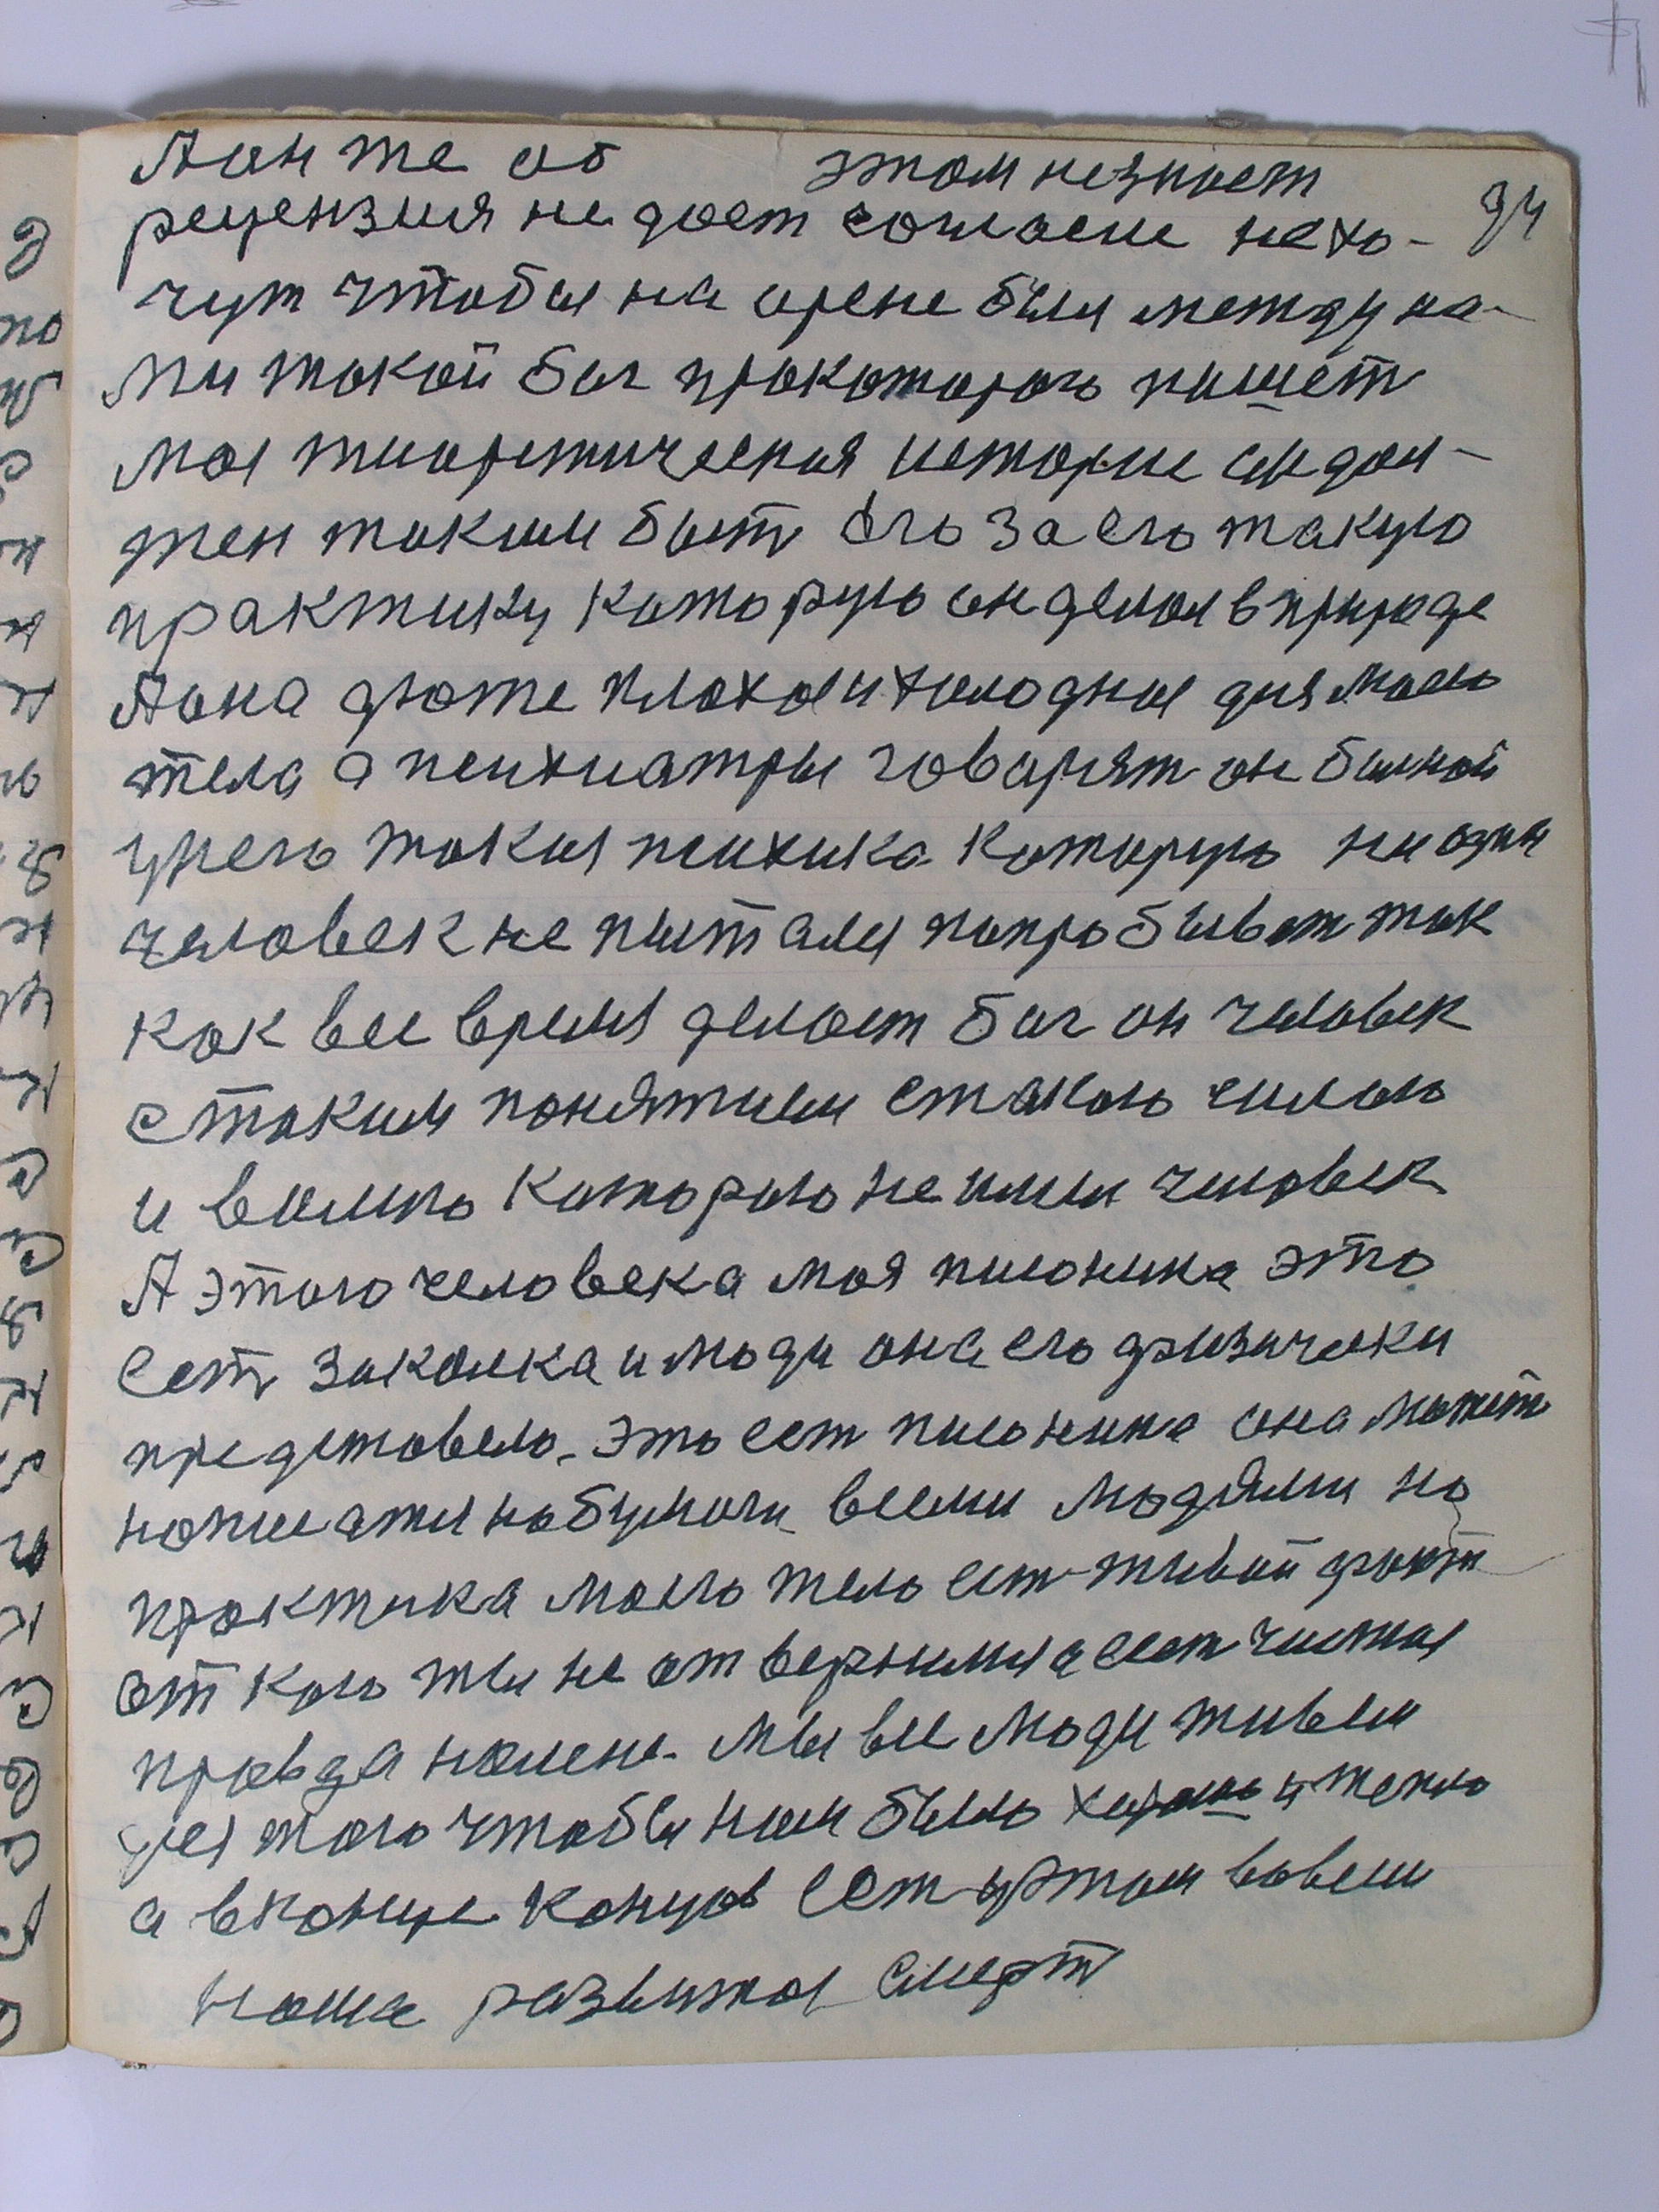 А он же об этом незнает
рецензия не дает согласие не хо-
чут чтобы на арене был между на-
ми такой бог прокоторого пишет
моя тиоретическая история он дол-
жен таким быт его за его такую
практику которую он делал в природе
А она дюже плохая и холодная для моего
тела а психиатры говорят он болной
унего такая психика которую ни один
человек не пытался попробыват так
как все время делает бог он человек
с таким понятием стакою силою
и волию которою не имел человек
А этого человека моя писонина это
ест закалка и люди она его физически
представела. это ест писонина она может
написатся на бумаги всеми людями но
практика моего тело ест живой факт
от кого ты не отвернешся ест чистая
правда на лице. мы все люди живем
для того чтобы нам было хорошо и тепло
а вконце концов ест при том во всем
наше развитая смерт